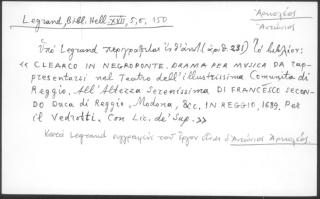 Legrand, Bibl. Hell. XVII, 5, σ. 150
Ἀρκολέος
Ἀντώνιος
Ὑπὸ Legrand περιγράφεται (ἀριθ. 231) τὸ βιβλίον:
« CLEARCO IN NEGROPONTE. DRAMA PER MUSICA DA rap-
presentarsi nel Teatro dell'illustrissima Comunita di
Reggio. All' Altezza Serenissima DI FRANCESCO SECON-
DO Duca di Reggio, Modona, &c, IN REGGIO, 1689, Per
il Vedrotti. Con Lic. de' Sup. »
Κατὰ Legrand συγγραφεὺς τοῦ ἔργου εἶναι ὁ Ἀντώνιος Ἀρκολέος.